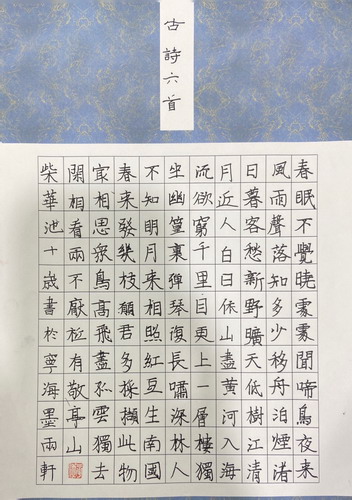 古詩六首
春眠不覺曉處處聞啼鳥夜來
風雨聲落知多少移舟泊煙渚
日暮客愁新野曠天低樹江清
月近人白日依山盡黃河入海
流欲窮千里目更上一層樓獨
坐幽篁裏彈琴復長嘯深林人
不知明月來相照紅豆生南國
春來發幾枝願君多採擷此物
㝡相思眾鳥高飛盡孤雲獨去
閑相看兩不厭秖有敬亭山
柴華池十歲書於寧海墨雨軒